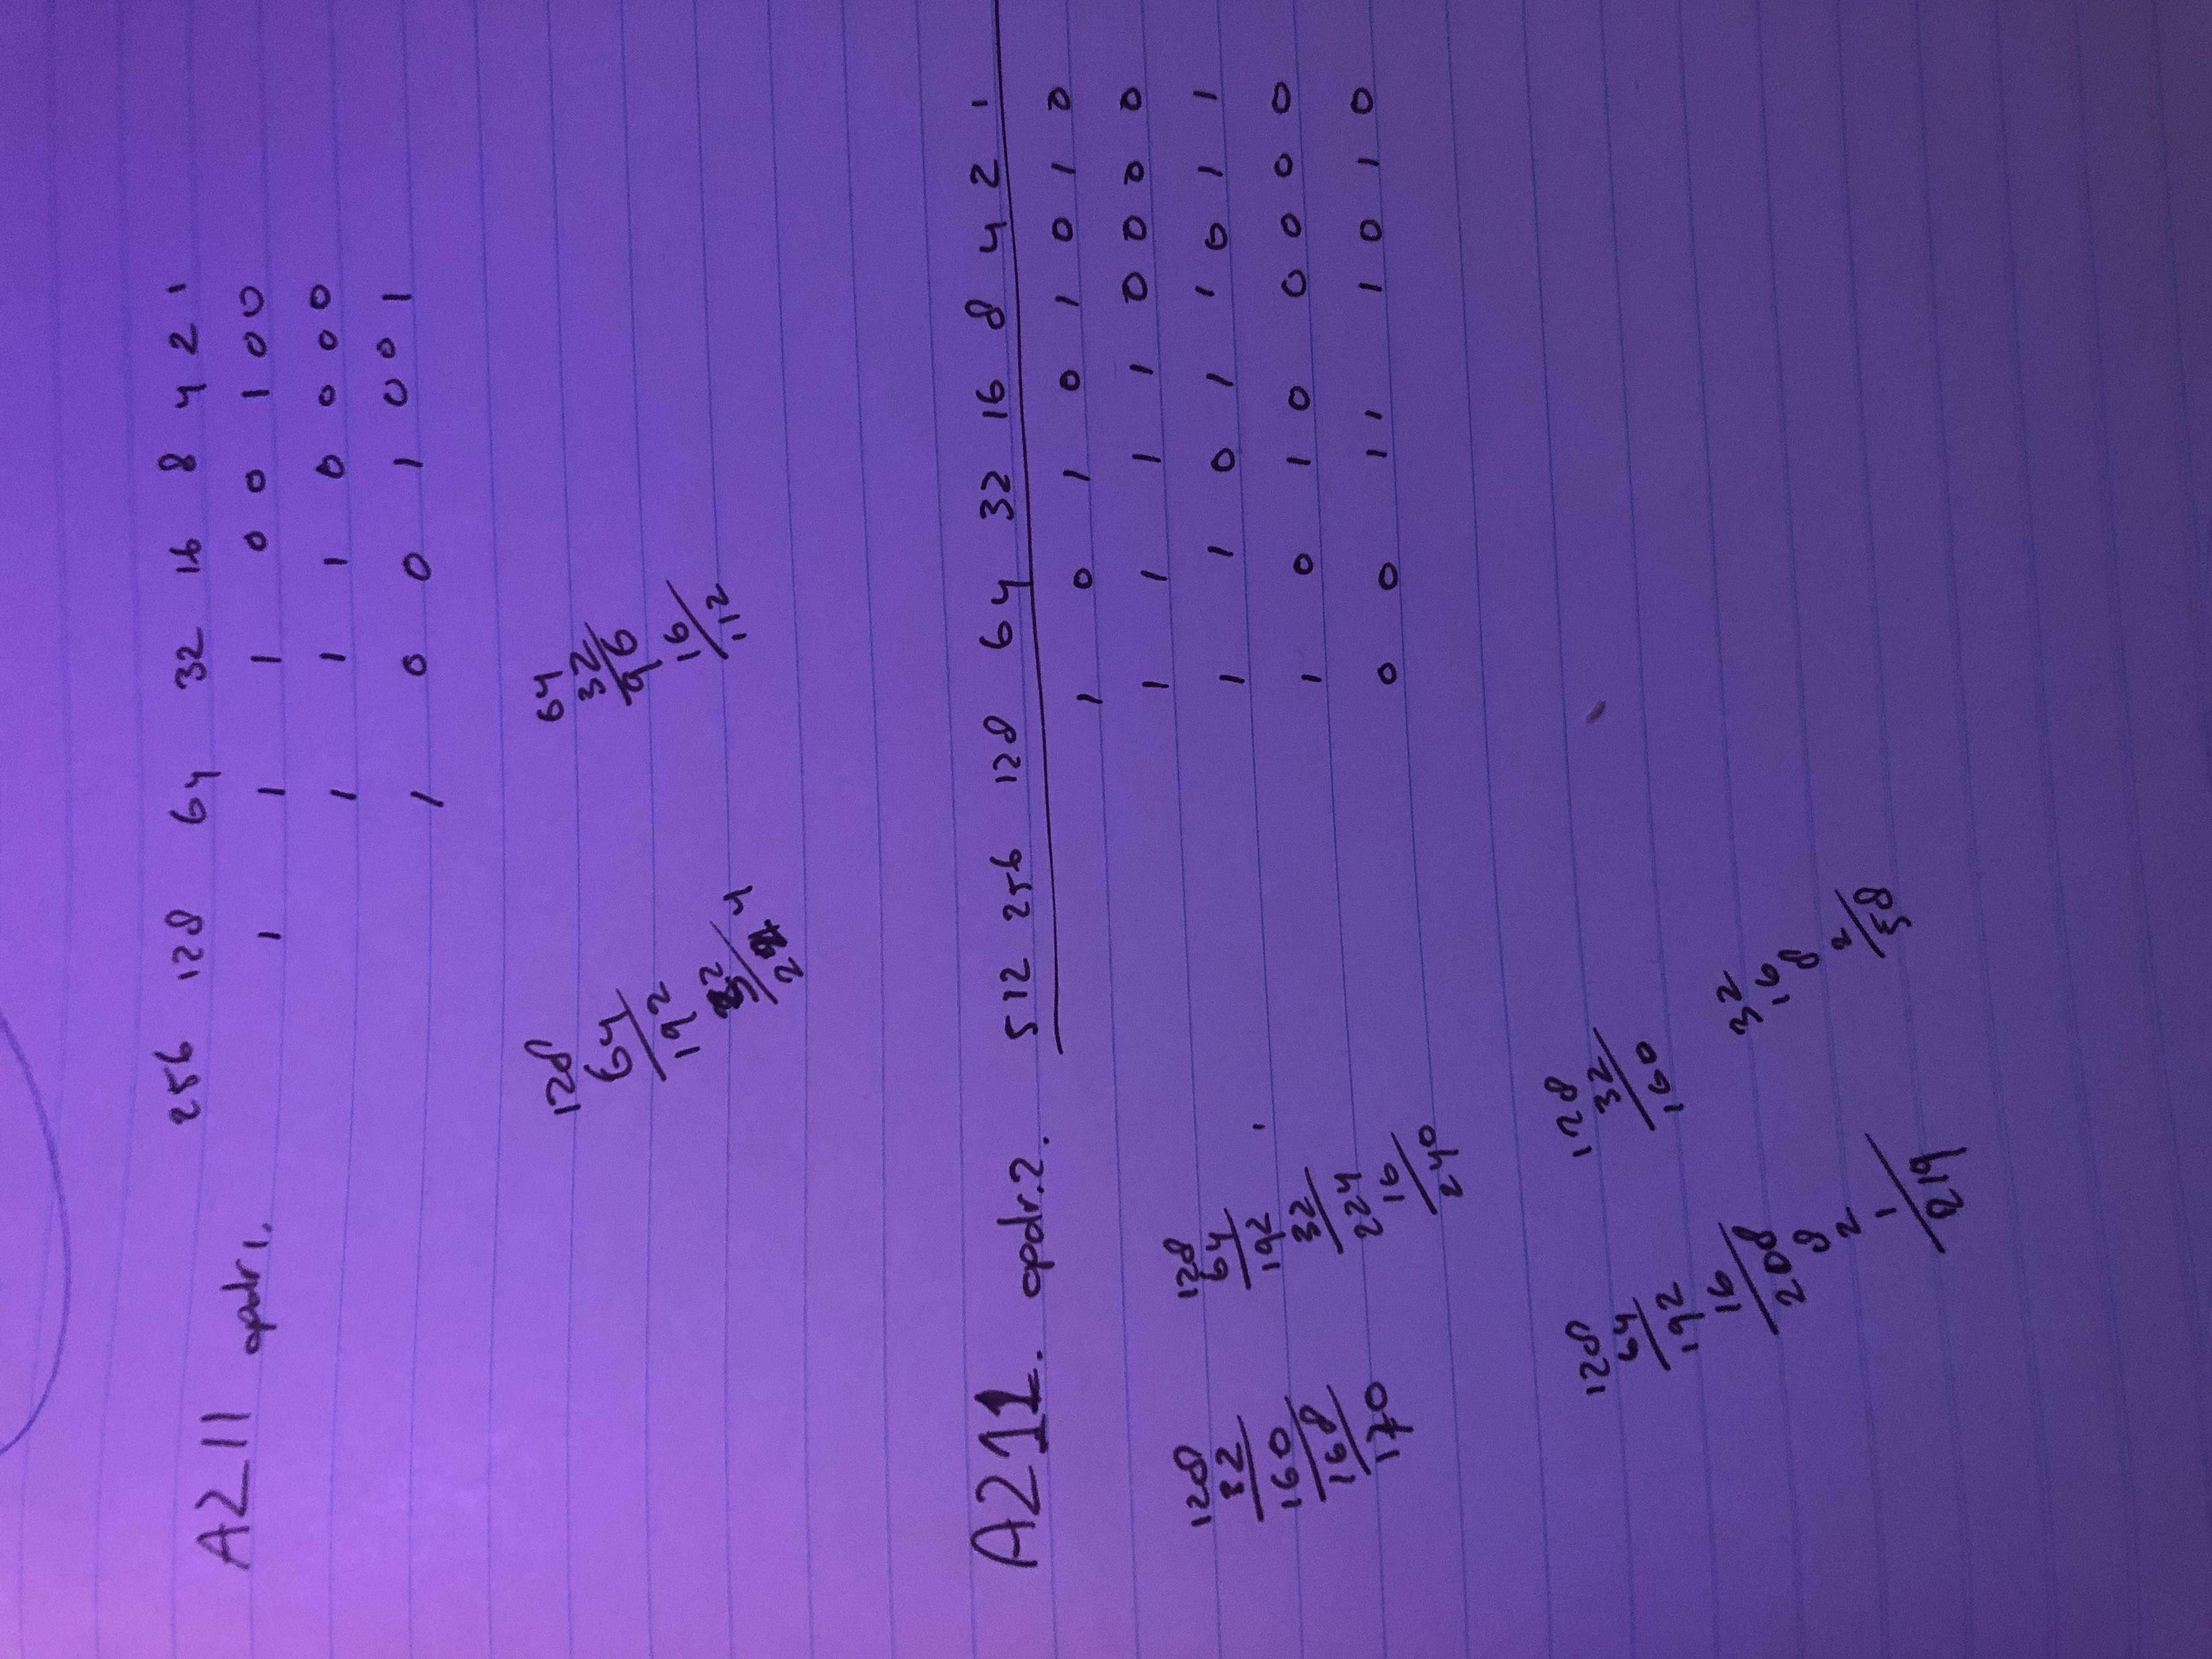 256 128 64 32 16 8 4 2 1
A211 opdr 1. 1 1 1 0 0 1 0 0
1 1 1 0 0 0 0
1 0 0 1 0 0 1
128
64
192
32
224
64
32
96
16
112
A211. opdr.2. 512 256 128 64 32 16 8 4 2 1
1 0 1 0 1 0 1 0
1 1 1 1 0 0 0 0
1 1 0 1 1 0 1 1
1 0 1 0 0 0 0 0
0 0 1 1 1 0 1 0
128
32
160
168
170
128
64
192
32
224
16
240
128
64
192
16
208
8
2
1
219
128
32
160
32
16
8
2
58